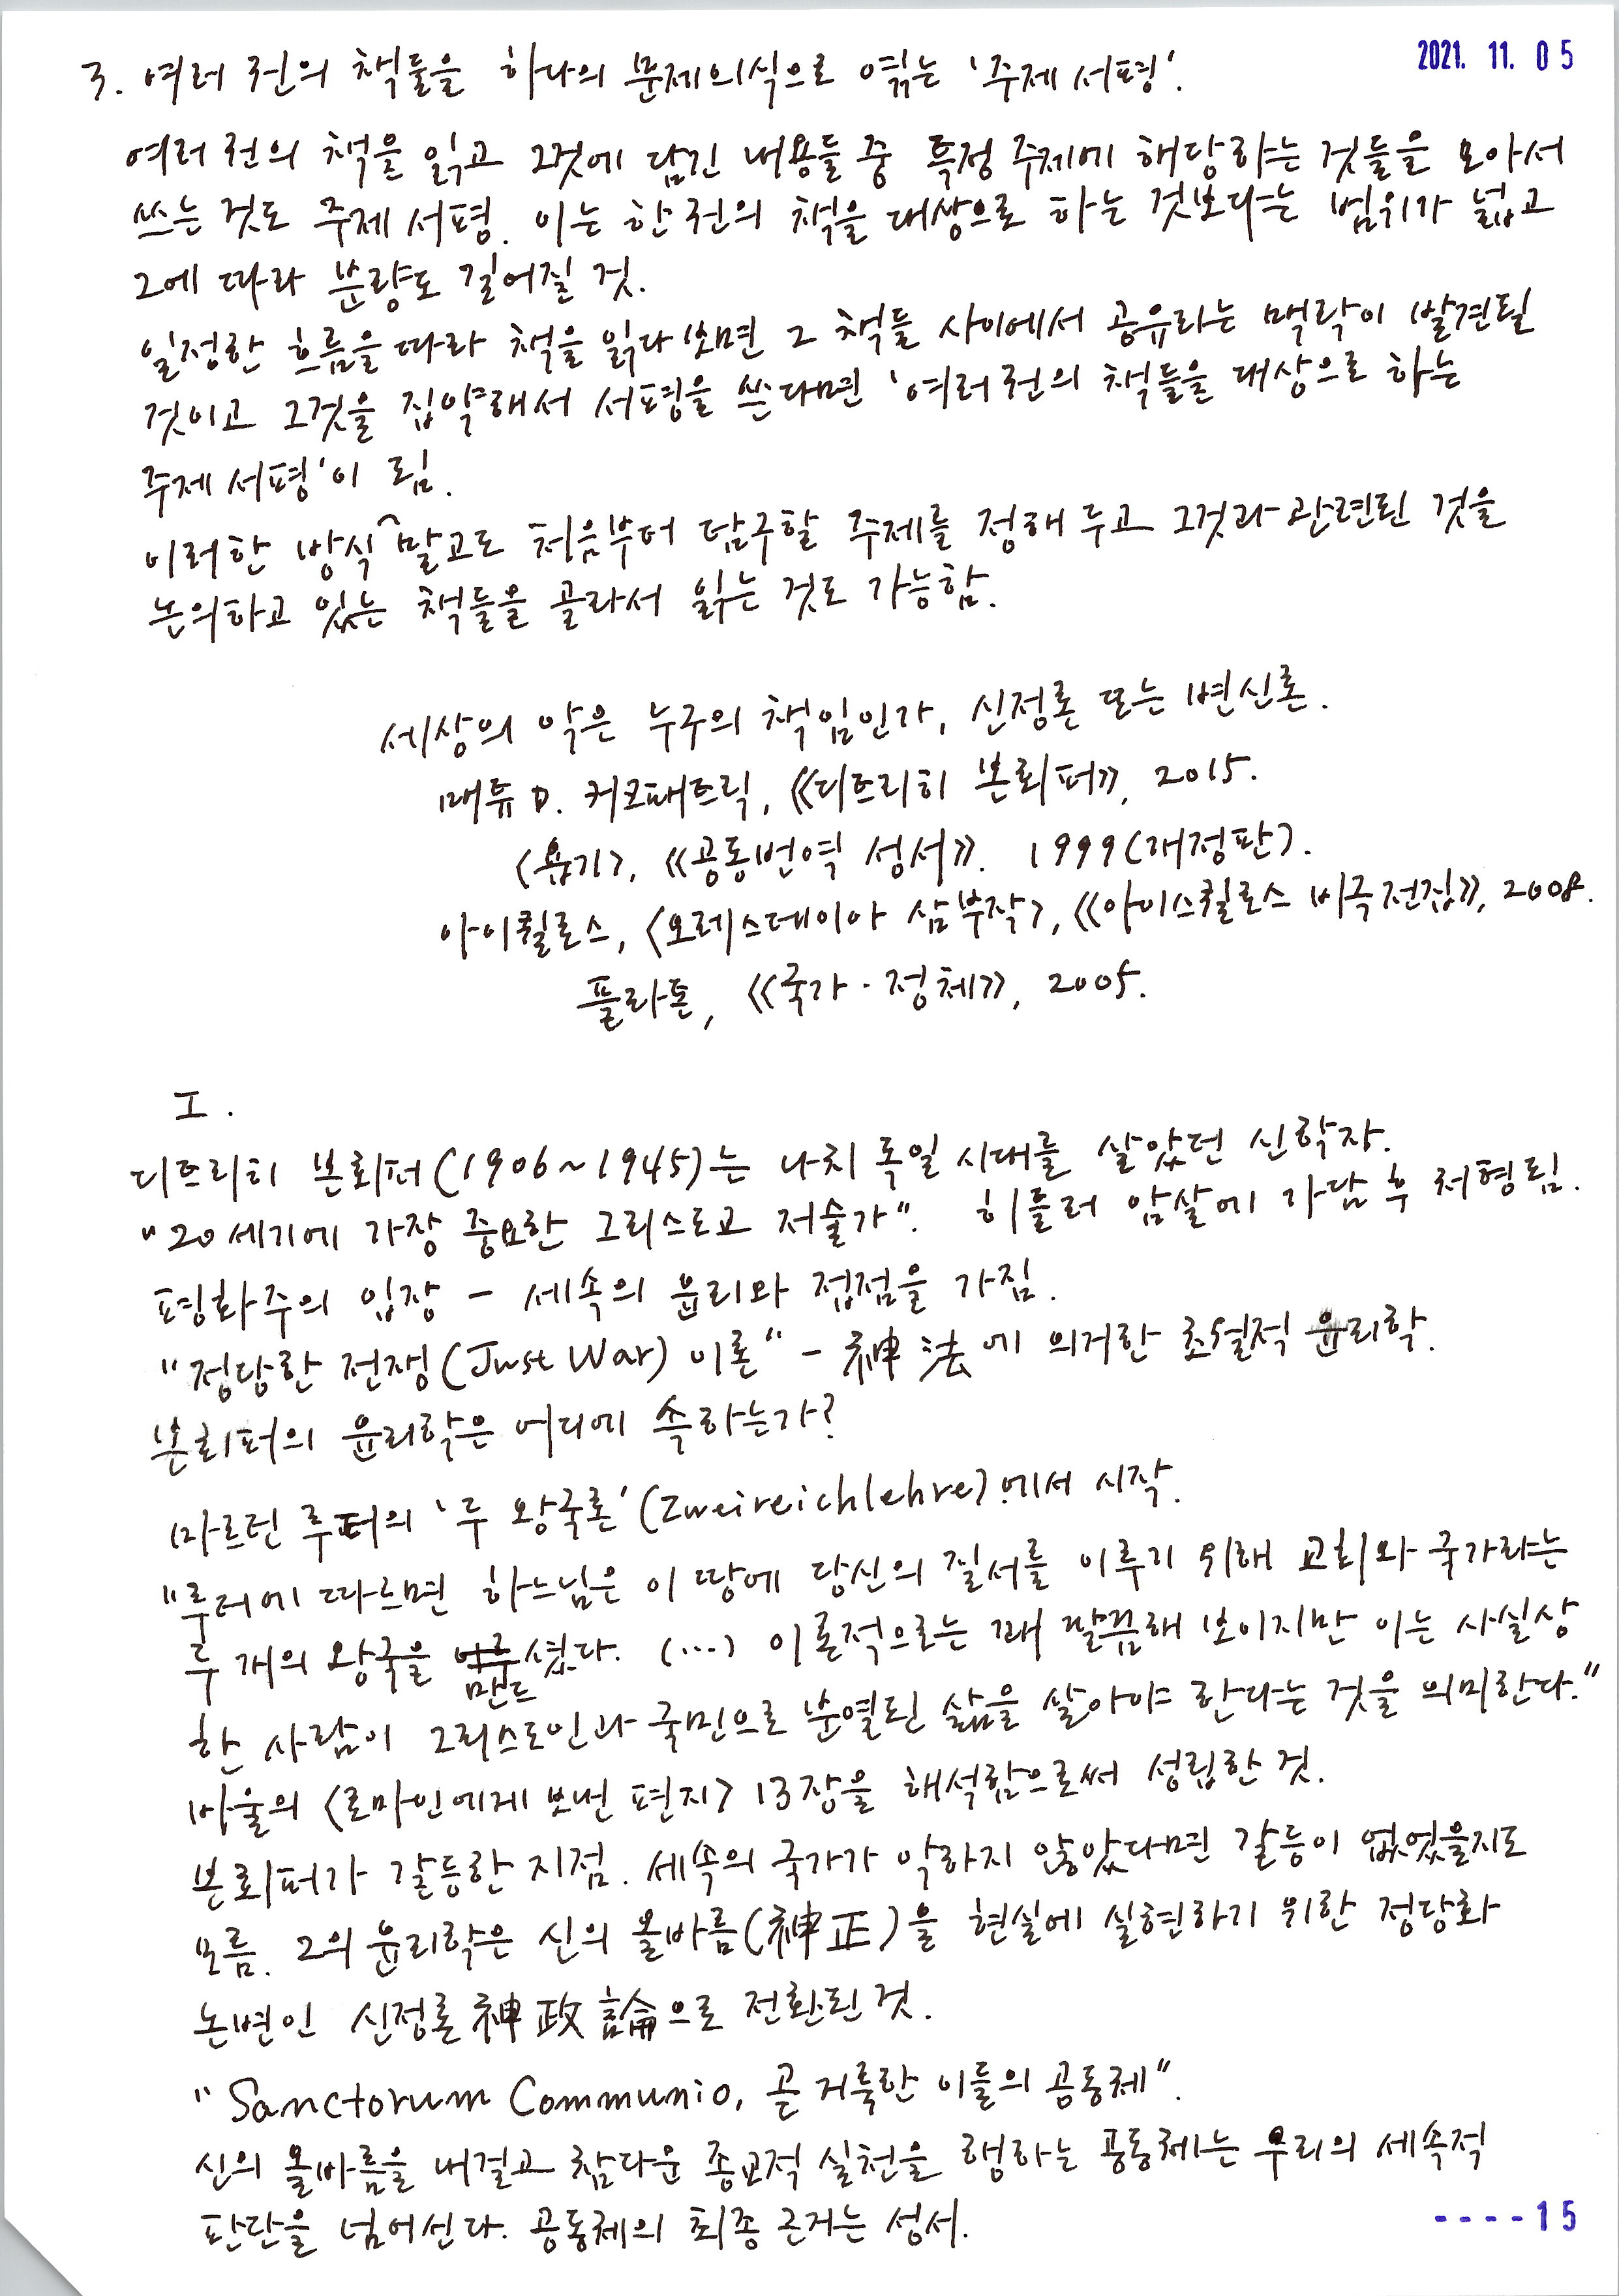 2021. 11. 05
3. 여러 권의 책들을 하나의 문제의식으로 엮는 '주제 서평'.
여러 권의 책을 읽고 그것에 담긴 내용들 중 특정 주제에 해당하는 것들을 모아서
쓰는 것도 주제 서평. 이는 한 권의 책을 대상으로 하는 것보다는 범위가 넓고
그에 따라 분량도 길어질 것.
일정한 흐름을 따라 책을 읽다보면 그 책들 사이에서 공유하는 맥락이 발견될
것이고 그것을 집약해서 서평을 쓴다면 '여러 권의 책들을 대상으로 하는
주제 서평'이 됨.
이러한 방식 말고도 처음부터 탐구할 주제를 정해 두고 그것과 관련된 것을
논의하고 있는 책들을 골라서 읽는 것도 가능함.
세상의 악은 누구의 책임인가, 신정론 또는 변신론.
매튜 D. 커크패트릭, 《디트리히 본회퍼》, 2015.
〈욥기〉, 《공동번역 성서》. 1999(개정판).
아이퀼로스, 〈오레스테이아 삼부작〉, 《아이스퀼로스 비극전집》, 2008.
플라톤, 《국가·정체》, 2005.
I.
디트리히 본회퍼(1906~1945)는 나치 독일 시대를 살았던 신학자.
"20세기에 가장 중요한 그리스도교 저술가". 히틀러 암살에 가담 후 처형됨.
평화주의 입장 - 세속의 윤리와 접점을 가짐.
"정당한 전쟁(Just War) 이론" - 神法에 의거한 초월적 윤리학.
본회퍼의 윤리학은 어디에 속하는가?
마르틴 루터의 '두 왕국론'(Zweireichlehre)에서 시작.
"루터에 따르면 하느님은 이 땅에 당신의 질서를 이루기 위해 교회와 국가라는
두 개의 왕국을 만드셨다. (…) 이론적으로는 꽤 말끔해 보이지만 이는 사실상
한 사람이 그리스도인과 국민으로 분열된 삶을 살아야 한다는 것을 의미한다."
바울의 〈로마인에게 보낸 편지〉 13장을 해석함으로써 성립한 것.
본회퍼가 갈등한 지점. 세속의 국가가 악하지 않았다면 갈등이 없었을지도
모름. 그의 윤리학은 신의 올바름(神正)을 현실에 실현하기 위한 정당화
논변인 신정론神政論으로 전환된 것.
"Sanctorum Communio, 곧 거룩한 이들의 공동체".
신의 올바름을 내걸고 참다운 종교적 실천을 행하는 공동체는 우리의 세속적
판단을 넘어선다. 공동체의 최종 근거는 성서.
----15